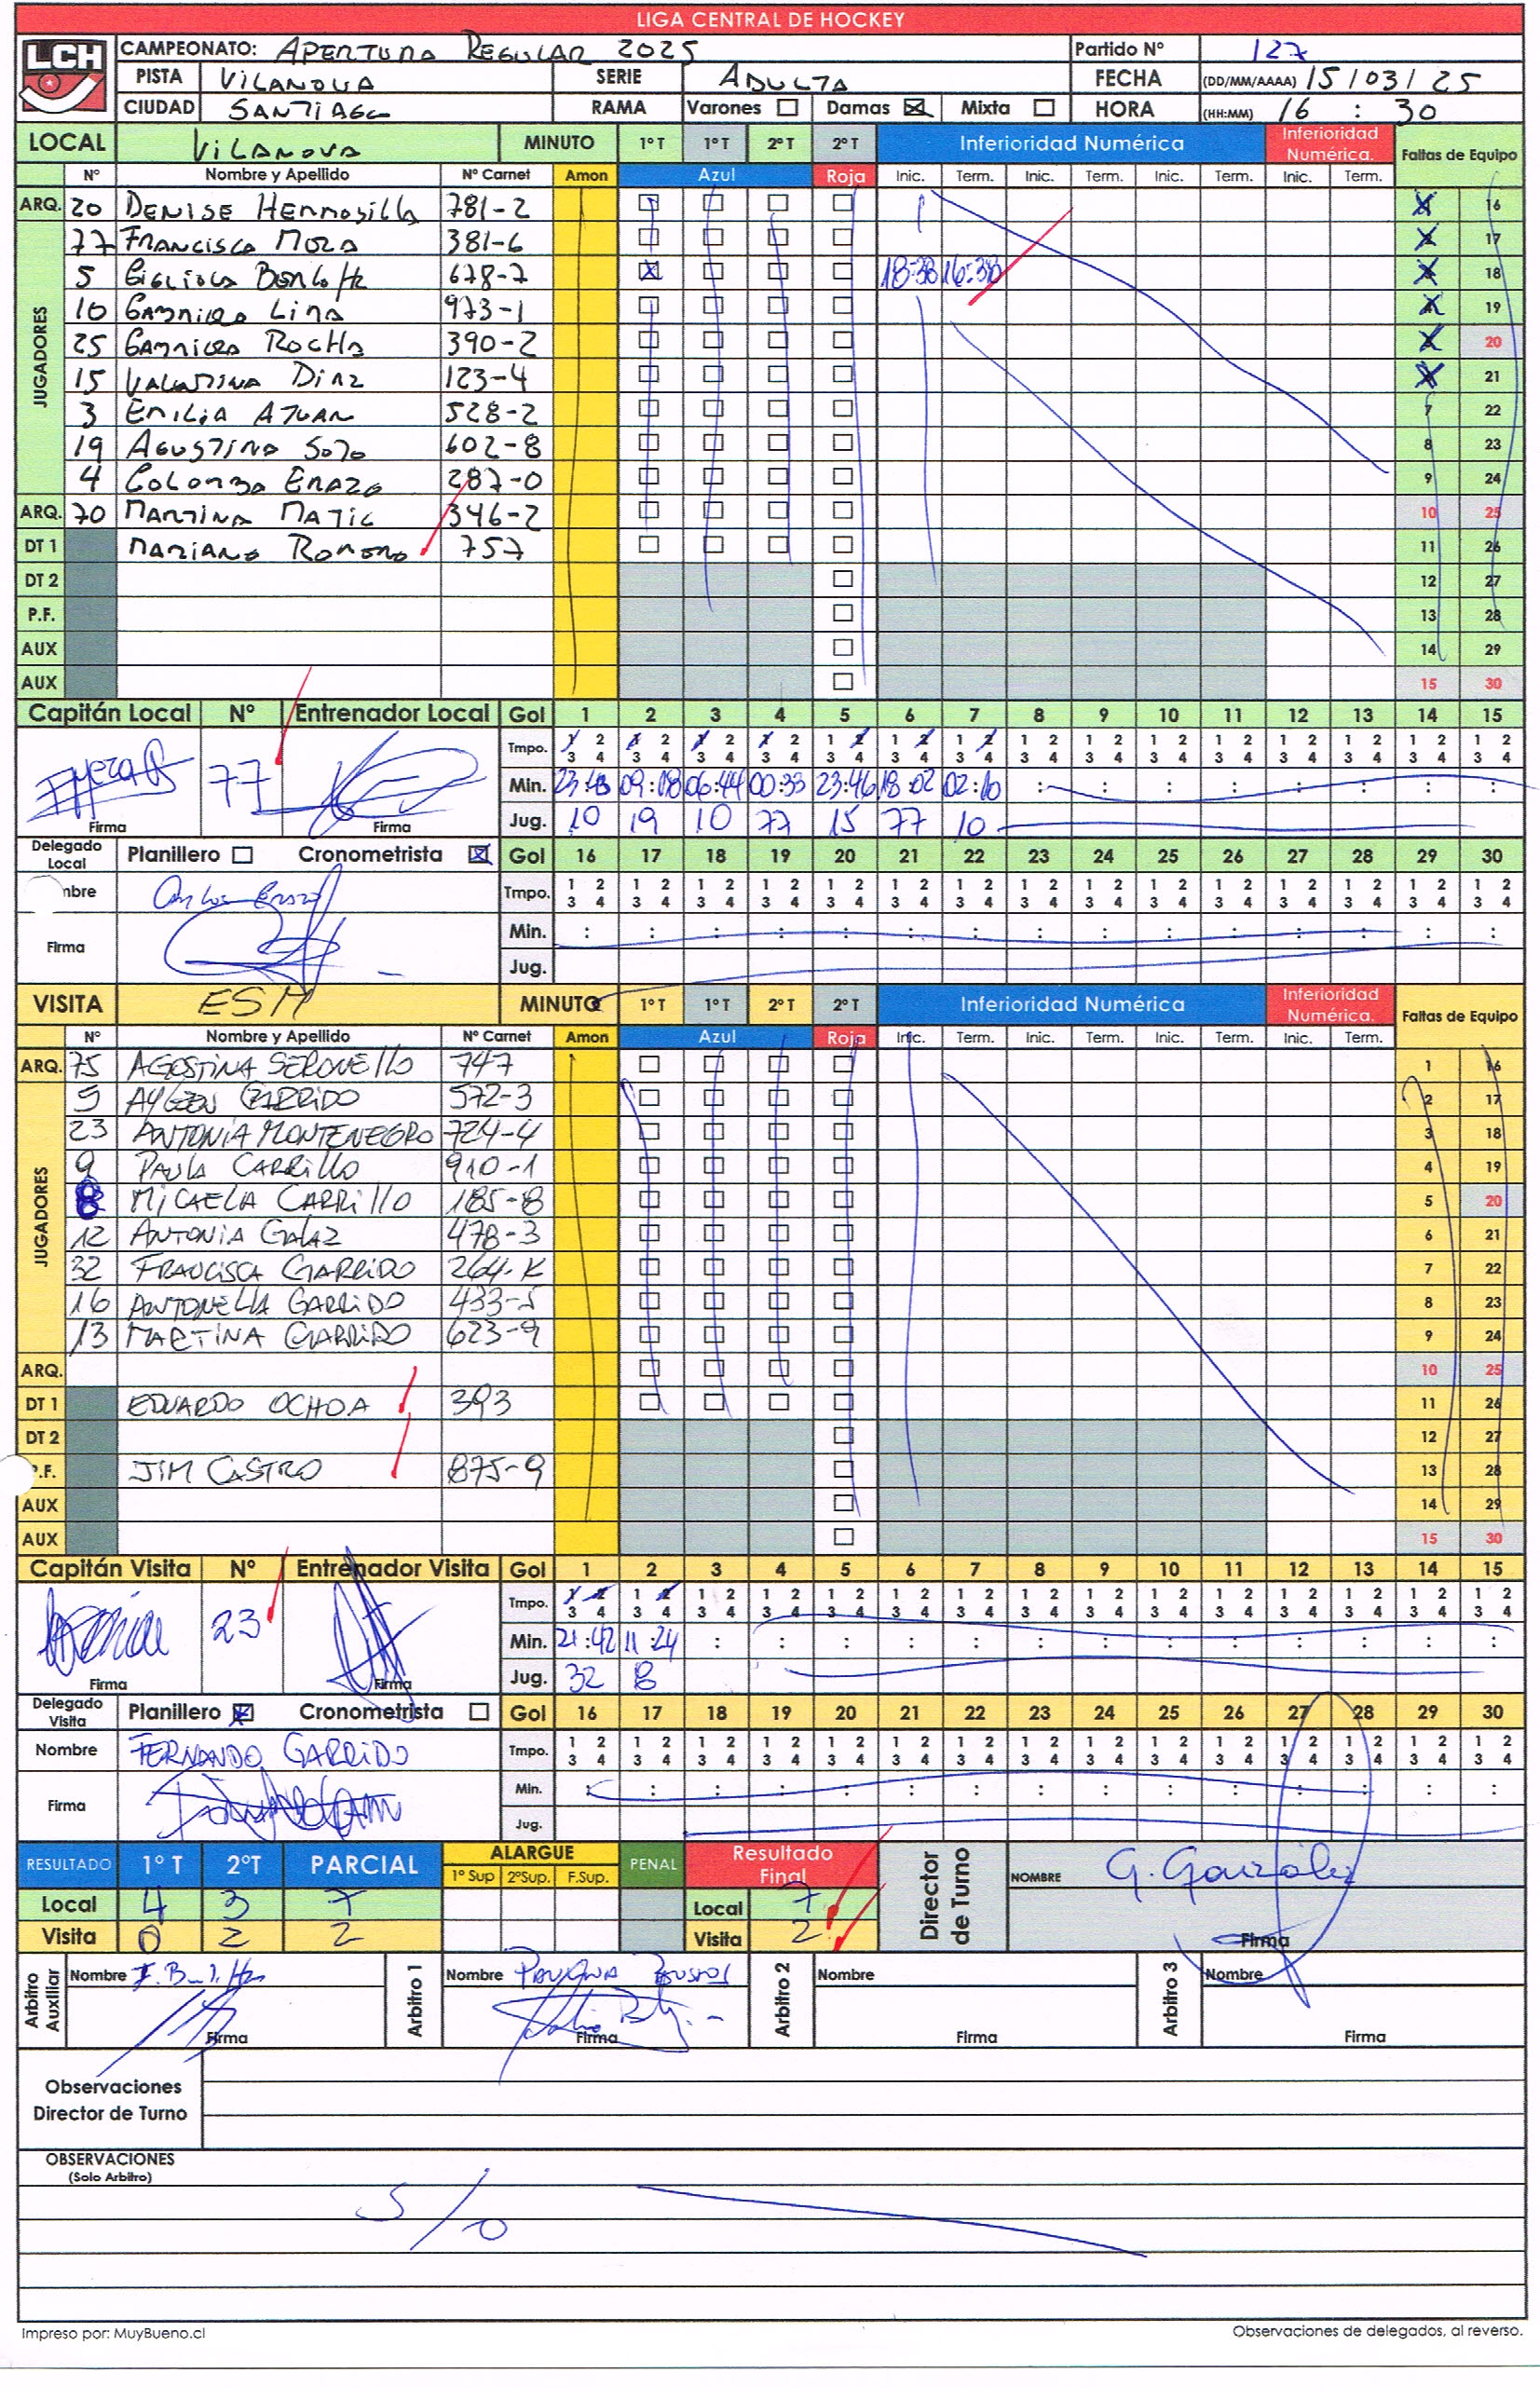 LIGA CENTRAL DE HOCKEY
LCH
CAMPEONATO: APERTURA REGULAR 2025 Partido Nº 127
PISTA VILANOVA SERIE ADULTA FECHA (DD/MM/AAAA) 15/03/25
CIUDAD SANTIAGO RAMA Varones Damas Mixta HORA (HH:MM) 16 : 30
LOCAL VILANOVA MINUTO 1º T 1º T 2º T 2º T Inferioridad Numérica Inferioridad Numérica. Faltas de Equipo
Nº Nombre y Apellido Nº Carnet Amon Azul Roja Inic. Term. Inic. Term. Inic. Term. Inic. Term.
JUGADORES
ARQ. 20 DENISE HERMOSILLA 781-2 16
77 FRANCISCA MORA 381-6 17
5 GIGLIOLA 678-7 18:38 16:38 18
10 LIRA 973-1 19
25 ROCHA 390-2 20
15 VALENTINA DIAZ 123-4 21
3 EMILIA 528-2 7 22
19 AGUSTINA SOTO 602-8 8 23
4 COLOMBA ERAZO 287-0 9 24
ARQ. 70 MARTINA MATIC 346-2 10 25
DT 1 MARIANO ROMERO 757 11 26
DT 2 12 27
P.F. 13 28
AUX 14 29
AUX 15 30
Capitán Local Nº Entrenador Local Gol 1 2 3 4 5 6 7 8 9 10 11 12 13 14 15
77
Tmpo. 1 2 1 2 1 2 1 2 1 2 1 2 1 2 1 2 1 2 1 2 1 2 1 2 1 2 1 2 1 2
3 4 3 4 3 4 3 4 3 4 3 4 3 4 3 4 3 4 3 4 3 4 3 4 3 4 3 4 3 4
Min. 09:18 06:44 00:33 23:46 18:02 02:10 : : : : : : : :
Jug. 10 19 10 77 15 77 10
Firma Firma
Delegado Local Planillero Cronometrista Gol 16 17 18 19 20 21 22 23 24 25 26 27 28 29 30
mbre Carlos Erazo Tmpo. 1 2 1 2 1 2 1 2 1 2 1 2 1 2 1 2 1 2 1 2 1 2 1 2 1 2 1 2 1 2
3 4 3 4 3 4 3 4 3 4 3 4 3 4 3 4 3 4 3 4 3 4 3 4 3 4 3 4 3 4
Firma Min. : : : : : : : : : : : : : : :
Jug.
VISITA ESM MINUTO 1º T 1º T 2º T 2º T Inferioridad Numérica Inferioridad Numérica. Faltas de Equipo
Nº Nombre y Apellido Nº Carnet Amon Azul Roja Inic. Term. Inic. Term. Inic. Term. Inic. Term.
JUGADORES
ARQ. 75 AGOSTINA 747 1 16
5 GARRIDO 572-3 2 17
23 ANTONIA MONTENEGRO 724-4 3 18
9 PAULA CARRILLO 910-1 4 19
8 MICAELA CARRILLO 185-8 5 20
12 ANTONIA GALAZ 478-3 6 21
32 FRANCISCA GARRIDO 264-K 7 22
16 ANTONELLA GARRIDO 433-5 8 23
13 MARTINA GARRIDO 623-9 9 24
ARQ. 10 25
DT 1 EDUARDO OCHOA 393 11 26
DT 2 12 27
P.F. JIM CASTRO 875-9 13 28
AUX 14 29
AUX 15 30
Capitán Visita Nº Entrenador Visita Gol 1 2 3 4 5 6 7 8 9 10 11 12 13 14 15
23
Tmpo. 1 2 1 2 1 2 1 2 1 2 1 2 1 2 1 2 1 2 1 2 1 2 1 2 1 2 1 2 1 2
3 4 3 4 3 4 3 4 3 4 3 4 3 4 3 4 3 4 3 4 3 4 3 4 3 4 3 4 3 4
Min. 21:42 11:24 : : : : : : : : : : : : :
Jug. 32 8
Firma Firma
Delegado Visita Planillero Cronometrista Gol 16 17 18 19 20 21 22 23 24 25 26 27 28 29 30
Nombre FERNANDO GARRIDO Tmpo. 1 2 1 2 1 2 1 2 1 2 1 2 1 2 1 2 1 2 1 2 1 2 1 2 1 2 1 2 1 2
3 4 3 4 3 4 3 4 3 4 3 4 3 4 3 4 3 4 3 4 3 4 3 4 3 4 3 4 3 4
Firma Min. : : : : : : : : : : : : : : :
Jug.
RESULTADO 1º T 2ºT PARCIAL ALARGUE PENAL Resultado Final Director de Turno NOMBRE G. González
1º Sup 2ºSup. F.Sup.
Local 4 3 7 Local 7
Visita 0 2 2 Visita 2 Firma
Arbitro Auxiliar Nombre Arbitro 1 Nombre Arbitro 2 Nombre Arbitro 3 Nombre
Firma Firma Firma Firma
Observaciones
Director de Turno
OBSERVACIONES
(Solo Arbitro)
S/O
Impreso por: MuyBueno.cl Observaciones de delegados, al reverso.